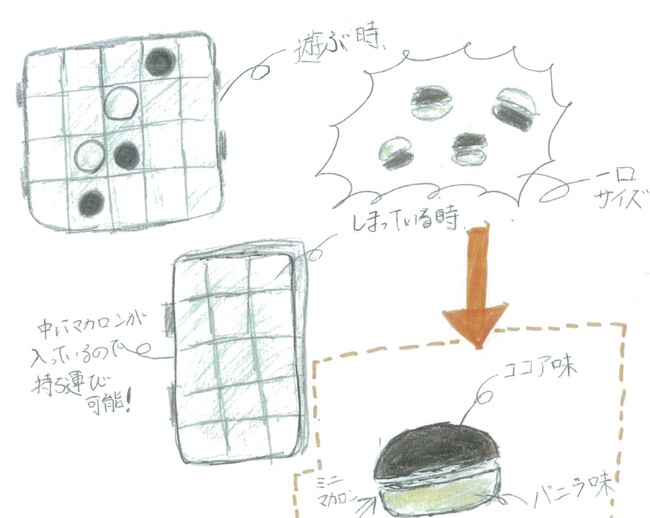 遊ぶ時、
一口
サイズ
しまっている時
中にマカロンが
入っているので
持ち運び
可能!
ココア味
ミニ
マカロン
バニラ味